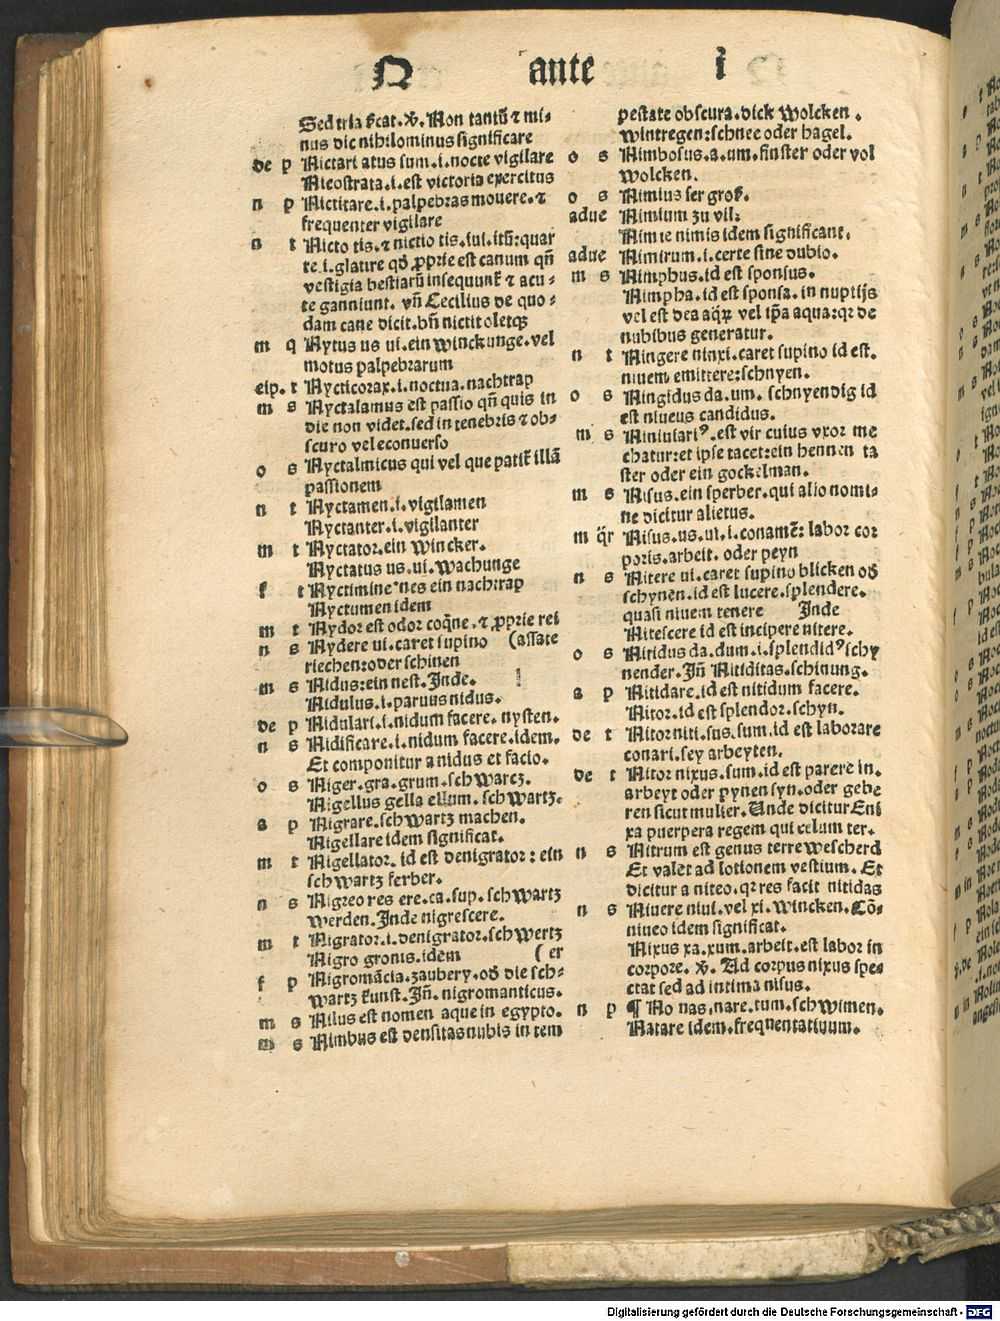 N ante i
Sed tria ſicat. v̄. Non tantū ⁊ mi⸗
nus dic nihilominus ſignificare
de p Nictari atus ſum .i. nocte vigilare
Nicoſtrata .i. eſt victoria exercitus
n p Nictitare .i. palpebras mouere. ⁊
frequenter vigilare
n t Nicto tis. ⁊ nictio tis. iui. itū: quar
te .i. glatire qð ꝓprie eſt canum qñ
veſtigia beſtiarū inſequunt̃ ⁊ acu⸗
te ganniunt. vñ Cecilius de quo⸗
dam cane dicit. bñ nictit oletqꝫ
m q Nytus us ui. ein winckunge. vel
motus palpebrarum
eip. t Nycticorax .i. noctua. nachtrap
m s Nyctalamus eſt paſſio qñ quis in
die non videt. ſed in tenebris ⁊ ob⸗
ſcuro vel econuerſo
o s Nyctalmicus qui vel que patit̃ illā
paſſionem
n t Nyctamen .i. vigilamen
Nyctanter .i. vigilanter
m t Nyctator. ein wincker.
Nyctatus us. ui. wachunge
f t Nyctimine nes ein nachtrap
Nyctumen idem
m t Nydor eſt odor coq̄ne. ⁊ ꝓprie rei
n s Nydere ui. caret ſupino (aſſate
riechen: oder ſchinen
m s Nidus: ein neſt. Inde.
Nidulus .i. paruus nidus.
de p Nidulari .i. nidum facere. nyſten.
n s Nidificare .i. nidum facere. idem.
Et componitur a nidus et facio.
o s Niger. gra. grum. ſchwarcz.
Nigellus gella ellum. ſchwartz.
a p Nigrare. ſchwartz machen.
Nigellare idem ſignificat.
m t Nigellator. id eſt denigrator: ein
ſchwartz ferber.
n s Nigreo res ere. ca. ſup. ſchwartz
werden. Inde nigreſcere.
m t Nigrator .i. denigrator. ſchwertz
Nigro gronis. idem ( er
f p Nigromācia. zaubery. oð die ſch⸗
wartz kunſt. Jñ. nigromanticus.
m s Nilus eſt nomen aque in egypto.
m s Nimbus eſt denſitas nubis in tem
peſtate obſcura. dick wolcken.
wintregen: ſchnee oder hagel.
o s Nimboſus. a. um. finſter oder vol
wolcken.
o s Nimius ſer groſ.
adue Nimium zu vil:
Nimie nimis idem ſignificant.
adue Nimirum .i. certe ſine dubio.
m s Nimphus. id eſt ſponſus.
Nimpha. id eſt ſponſa. in nuptijs
vel eſt dea aq̄ꝝ vel ip̄a aqua: qꝛ de
nubibus generatur.
n t Ningere ninxi. caret ſupino id eſt.
niuem emittere: ſchnyen.
o s Ningidus da. um. ſchnyendig id
eſt niueus candidus.
m s Niniulariꝰ. eſt vir cuius vxor me
chatur: et ipſe tacet: ein hennen ta
ſter oder ein gockelman.
m s Niſus. ein ſperber. qui alio nomi⸗
ne dicitur alietus.
m q̄r Niſus. us. ui .i. conamē: labor cor
poris. arbeit. oder peyn
n s Nitere ui. caret ſupino blicken oð
ſchynen. id eſt lucere. ſplendere.
quaſi niuem tenere Inde
Niteſcere id eſt incipere nitere.
o s Nitidus da. dum .i. ſplendidꝰ ſchy
nender. Jñ Nitiditas. ſchinung.
a p Nitidare. id eſt nitidum facere.
Nitor. id eſt ſplendor. ſchyn.
de t Nitor niti. ſus. ſum. id eſt laborare
conari. ſey arbeyten.
de t Nitor nixus. ſum. id eſt parere in.
arbeyt oder pynen ſyn. oder gebe
ren ſicut mulier. Unde dicitur Eni
xa puerpera regem qui celum ter.
n s Nitrum eſt genus terre weſcherd
Et valet ad lotionem veſtium. Et
dicitur a niteo. qꝛ res facit nitidas
n s Niuere niui. vel xi. wincken. Cō⸗
niueo idem ſignificat.
Nixus xa. xum. arbeit. eſt labor in
corpore. v̄. Ad corpus nixus ſpe⸗
ctat ſed ad intima niſus.
n p ¶ No nas. nare. tum. ſchwimen.
Natare idem. frequentatiuum.
Digitalisierung gefördert durch die Deutsche Forschungsgemeinschaft - DFG